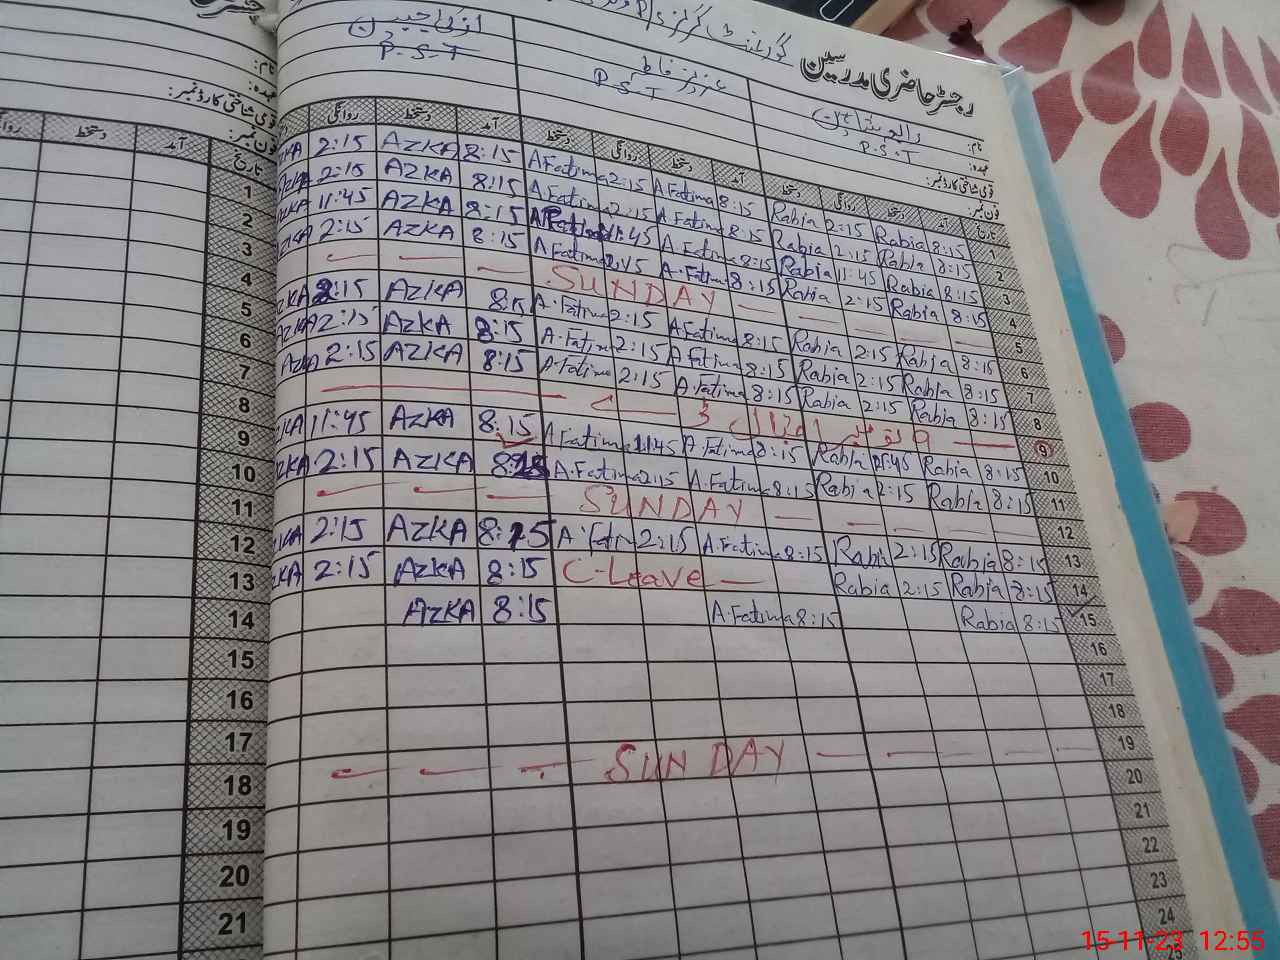 رجسٹر حاضری مدرسین
نام:
عہدہ: P.S.T
P.S.T
P.S.T
قومی شناختی کارڈ نمبر:
فون نمبر:
تاریخ آمد دستخط روانگی دستخط آمد دستخط روانگی دستخط آمد دستخط روانگی
1 8:15 Rabia 2:15 Rabia 8:15 A Fatima 2:15 A Fatima 8:15 AZKA 2:15
2 8:15 Rabia 2:15 Rabia 8:15 A Fatima 2:15 A Fatima 8:15 AZKA 2:15
3 8:15 Rabia 11:45 Rabia 8:15 A Fatima 11:45 8:15 AZKA 11:45
4 8:15 Rabia 2:15 Rabia 8:15 A.Fatima 2:15 A Fatima 8:15 AZKA 2:15
5 SUNDAY
6 8:15 Rabia 2:15 Rabia 8:15 A Fatima 2:15 A.Fatima 8:15 AZKA 2:15
7 8:15 Rabia 2:15 Rabia 8:15 A Fatima 2:15 A.Fatima 8:15 AZKA 2:15
8 8:15 Rabia 2:15 Rabia 8:15 A.Fatima 2:15 A.Fatima 8:15 AZKA 2:15
9
10 8:15 Rabia 11:45 Rabia 8:15 A.Fatima 11:45 A Fatima 8:15 AZKA 11:45
11 8:15 Rabia 2:15 Rabia 8:15 A.Fatima 2:15 A.Fatima 8:15 AZKA 2:15
12 SUNDAY
13 8:15 Rabia 2:15 8:15 A.Fatima 2:15 8:15 AZKA 2:15
14 8:15 Rabia 2:15 Rabia C-Leave 8:15 AZKA 2:15
15 8:15 Rabia 8:15 A.Fatima 8:15 AZKA
16
17
18
19 SUNDAY
20
21
22
23
24
25
نام:
عہدہ:
قومی شناختی کارڈ نمبر:
فون نمبر:
تاریخ آمد دستخط
1
2
3
4
5
6
7
8
9
10
11
12
13
14
15
16
17
18
19
20
21
15-11-23 12:55